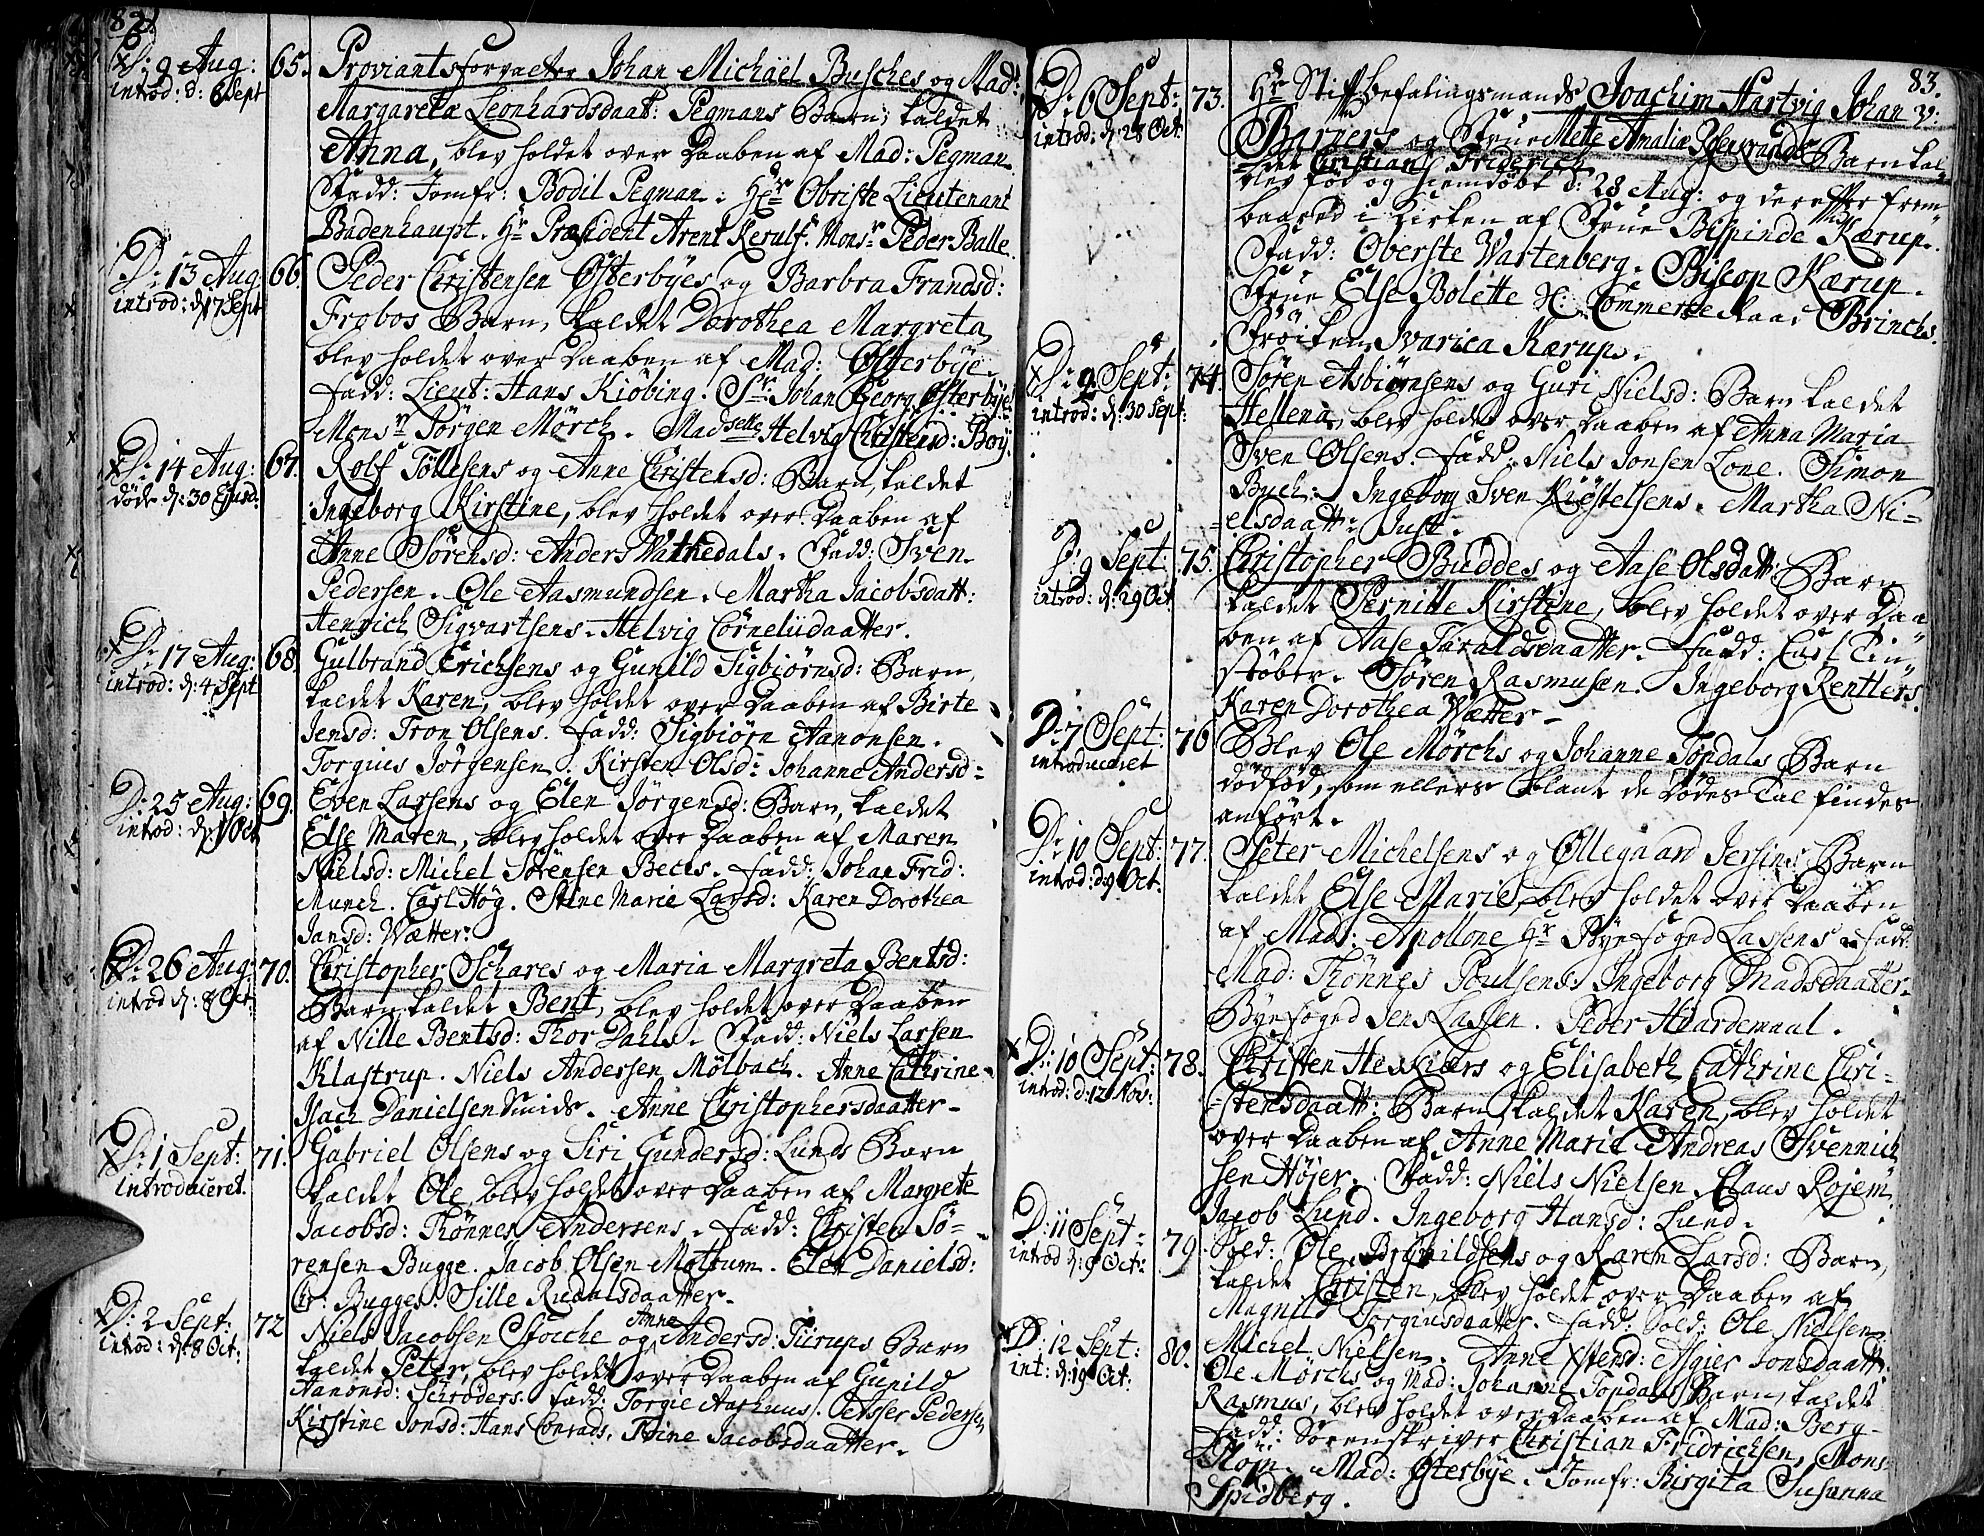 82.
D: 9 Aug: 65. Proviantsforvalter Johan Michaël Busches og Mad:
introd: d: 6 Sept Margareta Leonhardsdaat: Pegmans Barn, kaldet
Anna, blev holdet over Daaben af Mad: Pegman
Fadd: Jomfr: Bodil Pegman. Hr Obriste Lieutenant
Badenhaupt. Hr Præsident Arent Kerulf. Monsr Peder Balle.
D: 13 Aug 66. Peder Christensen Østerbyes og Barbra Frandsd:
introd: d: 17 Sept Frobos Barn, kaldet Dorothea Margreta
blev holdet over Daaben af Mad: Østerbye.
Fadd: Lieut: Hans Kiöbing. Sr. Johan Georg Østerbye
Monsr Jörgen Mörch. Madselle Helvig Christensd: Boy.
D: 14 Aug: 67. Rolf Töllesens og Anne Christensd: Barn, kaldet
döde d: 30 Ejusd: Ingeborg Kirstine, blev holdet over Daaben af
Anne Sörensd: Anders Vatnedals. Fadd: Sven
Pedersen. Ole Aasmundsen. Martha Jacobsdatt:
Henrich Sigvartsens. Helvig Corneliidaatter.
D: 17 Aug: 68. Gulbrand Erichsens og Gunild Sigbiörnsd: Barn,
introd: d: 4 Sept kaldet Karen, blev holdet over Daaben af Birte
Jensd: Tron Olsens. Fadd: Sigbiörn Aanonsen.
Torgius Jörgensen. Kirsten Olsd: Johanne Andersd:
D: 25 Aug: 69. Even Larsens og Elen Jörgensd: Barn, kaldet
introd: d: 1 Oct Else Maren, blev holdet over Daaben af Maren
Nielsd: Michel Sörensen Becks. Fadd: Johan Frid:
Munch. Carl Hög. Stine Marie Larsd: Karen Dorothea
Jansd: Wætter.
D: 26 Aug: 70. Christopher Schares og Maria Margreta Bentsd:
introd d: 8 Oct: Barn, kaldet Bent, blev holdet over Daaben
af Nille Bentsd: Thor Dahls. Fadd: Niels Larsen
Klastrup. Niels Andersen Mölbach. Anne Cathrine
Isach Danielsen Smids. Anne Christophersdaatter.
D: 1 Sept: 71. Gabriel Olsens og Siri Gundersd: Lunds Barn
introduceret. kaldet Ole, blev holdet over Daaben af Margrete
Jacobsd: Thönnes Andersens. Fadd: Christen Sö-
rensen Bugge. Jacob Olsen Moltum. Elen Danielsd:
Chr: Bugges. Sille Rudalsdaatter.
D: 2 Sept: 72 Niels Jacobsen Storche og Anne Andersd: Tiirups Barn
introd: d: 8 Oct: kaldet Peter, blev holdet over Daaben af Gunild
Aanonsd: Schröders. Fadd: Torgie Aarhuus. Asser Pedersen
Kirstine Jonsd: Hans Conrads. Trine Jacobsdaatter.
83.
D: 6 Sept: 73. Hr Stiftbefalingsmands Joachim Hartvig Johan v:
introd: d: 28 Oct: Barners og Frue Mette Amalia Barn kal-
det Christian Friderich
blev föd og hiemdöbt d: 28 Aug: og derefter frem-
baared i Kirken af Frue Bispinde Kærup.
Fadd: Oberste Wartenberg. Biscop Kærup.
Frue Else Bolette Hr Commerce Raad Brinchs.
Fröiken Ivarica Kærup.
D: 9 Sept: 74. Sören Asbiörnsens og Guri Nielsd: Barn kaldet
introd: d: 30 Sept: Hellena, blev holdet over Daaben af Anna Maria
Sven Olsens. Fadd: Niels Jonsen Lone. Simon
Bych: Ingeborg Sven Kiöstelsens. Martha Ni-
elsdaatt: Just.
D: 9 Sept: 75. Christopher Buddes og Aase Olsdatt: Barn
introd: d: 29 Oct kaldet Pernille Kirstine, blev holdet over Daa-
ben af Aase Taraldsdaatter. Fadd: Carl Tin-
stöber. Sören Rasmusen. Ingeborg Rentlers.
Karen Dorothea Wætter.
D: 7 Sept: 76 Blev Ole Mörchs og Johanne Topdals Barn
introduceret dödföd, som ellers blant de Dödes Tal findes
anfört.
D: 10 Sept: 77. Peter Michelsens og Öllegaard Jersins Barn
introd: d: 9 Oct. kaldet Else Marie, blev holdet over Daaben
af Mad: Apollone Hr Byefoged Lassens Fadd:
Mad: Thönnes Poulsens. Ingeborg Madsdaatter.
Byefoged Jens Lassen. Peder Haardemaal.
D: 10 Sept: 78. Christen Heskiers og Elisabeth Cathrine Chri-
introd: d: 12 Nov: stensdaatt: Barn, kaldet Karen, blev holdet
over Daaben af Anne Marie Andreas Svennich
sen Höjer. Fadd: Niels Nielsen. Claus Rojem
Jacob Lund. Ingeborg Hansd: Lund.
D: 11 Sept: 79. Sold: Ole Brÿnildsens og Karen Larsd: Barn,
introd d: 9 Oct: kaldet Christen, blev holdet over Daaben af
Magnild Torgiusdaatter. Fadd: Sold: Ole Nielsen
Michel Nielsen. Anne Xstensd: Asgier Jonsdaatt:
D: 12 Sept: 80. Ole Mörchs og Mad: Johanne Topdals Barn, kaldet
int: d: 19 Oct: Rasmus, blev holdet over Daaben af Mad: Berg-
Fadd: Sorenskriver Christian Fridrichsen, Mons:
Mad: Østerbye. Jomfr: Birgita Susanna
Spidberg.